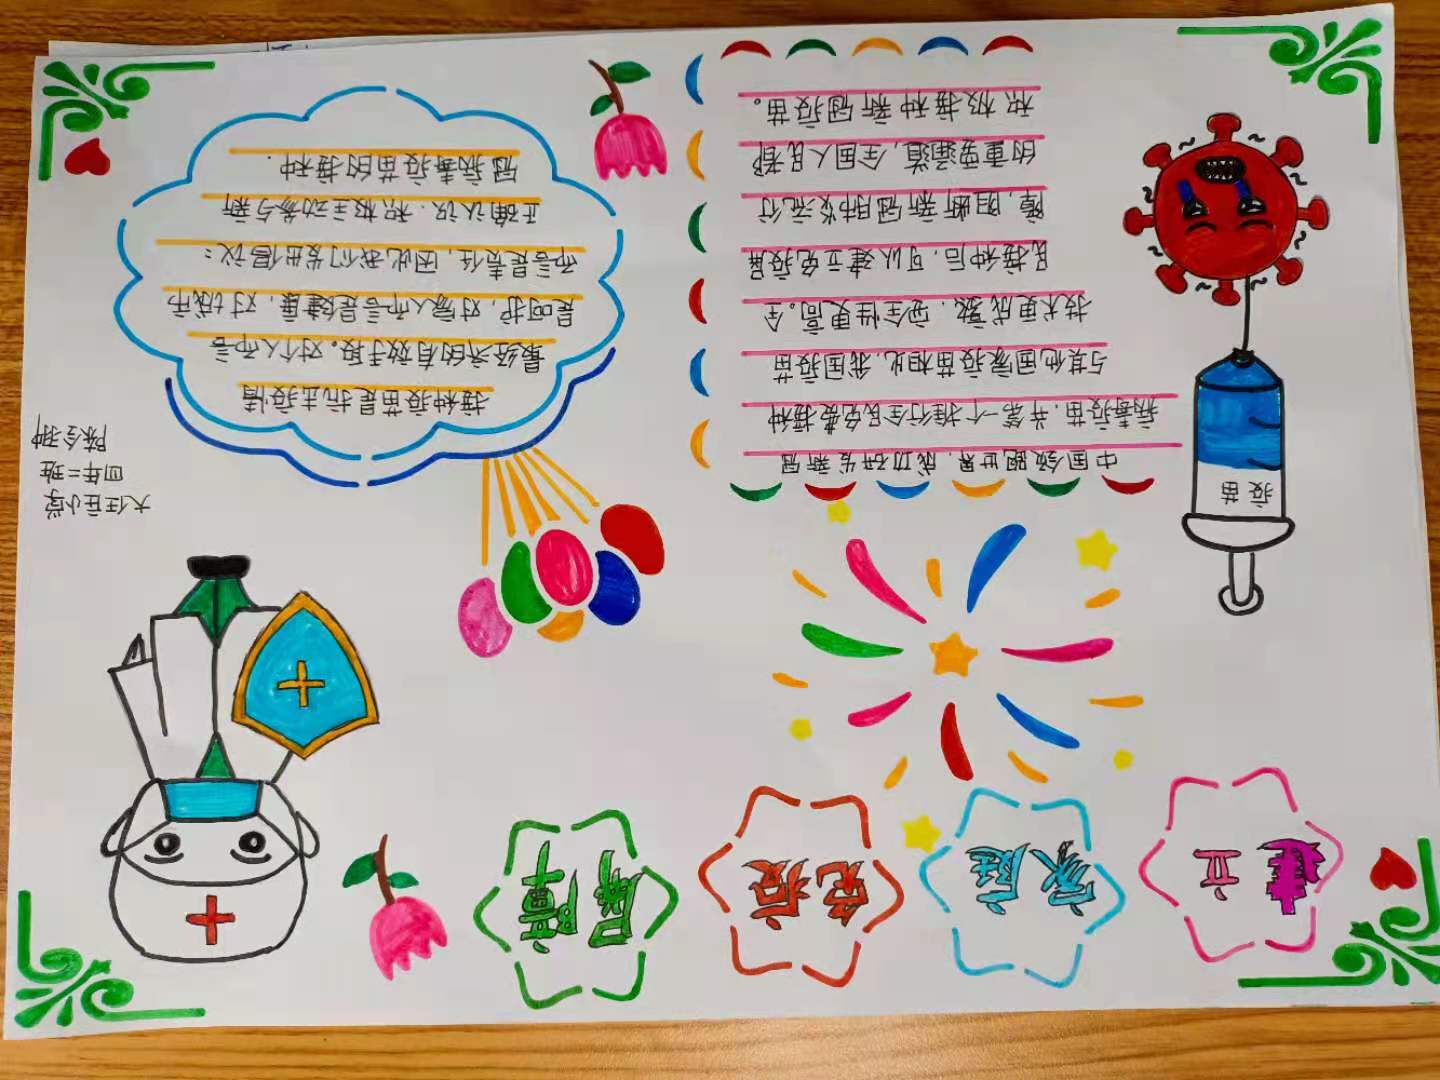 建立 家庭 免疫 屏障
疫苗
中国领跑世界,成功研发新冠
病毒疫苗,并第一个推行全民免费接种
与其他国家疫苗相比,我国疫苗
技术更成熟,安全性更高。全
民接种后,可以建立免疫屏
障,阻断新冠肺炎流行
的重要通道,全国人民都
积极接种新冠疫苗。
大任庄小学
四年二班
接种疫苗是抗击疫情
最经济的有效手段。对个人而言
是呵护,对家人而言是健康,对城市
而言是责任,因此我们发出倡议:
正确认识.积极主动参与新
冠病毒疫苗的接种.